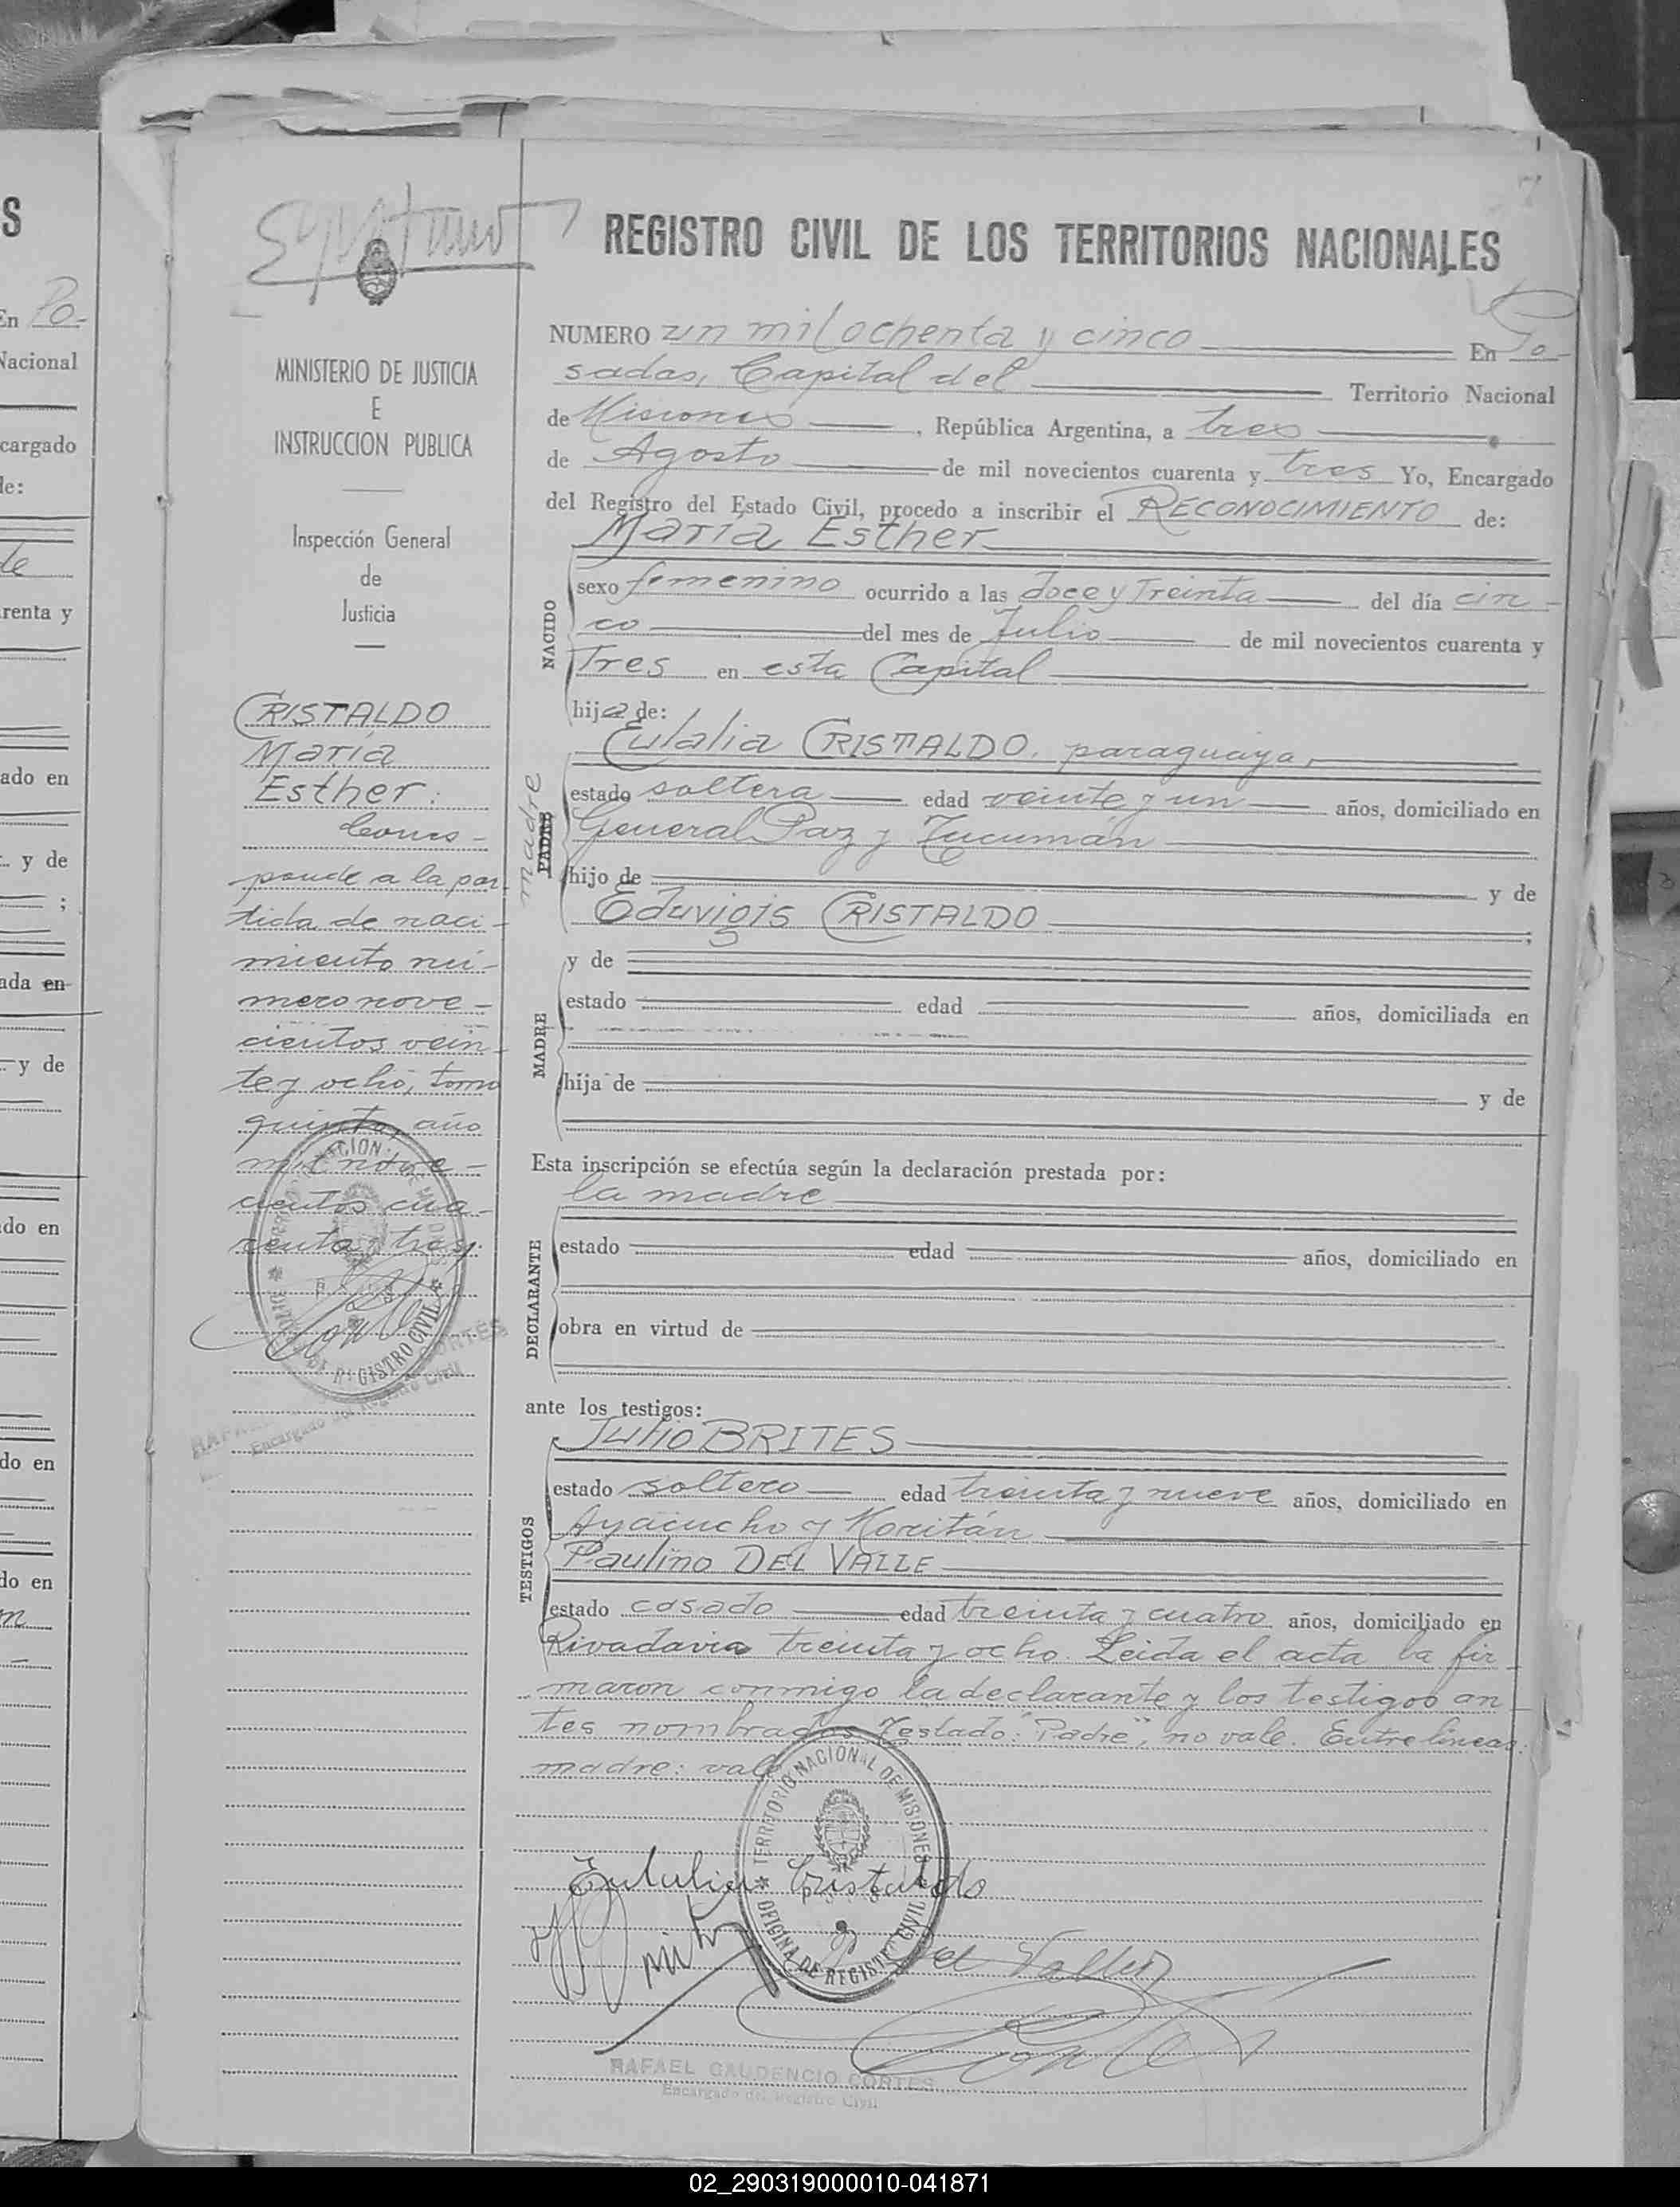 S
En Po-
Nacional
cargado
de:
de
renta y
ado en
y de
;
ada en
y de
do en
do en
do en
7
REGISTRO CIVIL DE LOS TERRITORIOS NACIONALES
MINISTERIO DE JUSTICIA
E
INSTRUCCION PUBLICA
Inspección General
de
Justicia
CRISTALDO
María
Esther:
Corres-
ponde a la par-
tida de naci-
miento nú-
mero nove-
cientos vein-
te y ocho, tomo
quinto, año
mil nove-
cientos cua-
renta y tres.
REGISTRO CIVIL
Encargado del Registro Civil
NUMERO un mil ochenta y cinco En Po-
sadas, Capital del Territorio Nacional
de Misiones, República Argentina, a tres
de Agosto de mil novecientos cuarenta y tres Yo, Encargado
del Registro del Estado Civil, procedo a inscribir el RECONOCIMIENTO de:
NACIDO
María Esther
sexo femenino ocurrido a las doce y Treinta del día cin-
co del mes de Julio de mil novecientos cuarenta y
Tres en esta Capital
hija de:
madre
PADRE
Eulalia CRISTALDO, paraguaya,
estado soltera edad veinte y un años, domiciliado en
General Paz y Tucumán
hijo de y de
Eduvigis CRISTALDO ;
MADRE
y de
estado edad años, domiciliada en
hija de y de
Esta inscripción se efectúa según la declaración prestada por:
la madre
DECLARANTE
estado edad años, domiciliado en
obra en virtud de
ante los testigos:
TESTIGOS
Julio BRITES
estado soltero edad treinta y nueve años, domiciliado en
Ayacucho y Moritán
Paulino DEL VALLE
estado casado edad treinta y cuatro años, domiciliado en
Rivadavia treinta y ocho. Leida el acta la fir-
maron conmigo la declarante y los testigos an-
tes nombrados Testado: "Padre", no vale. Entre líneas:
madre: vale
TERRITORIO NACIONAL DE MISIONES
OFICINA DE REGISTRO CIVIL
Eulalia Cristaldo
del Valle
RAFAEL GAUDENCIO CORTES
Encargado del Registro Civil
02_290319000010-041871